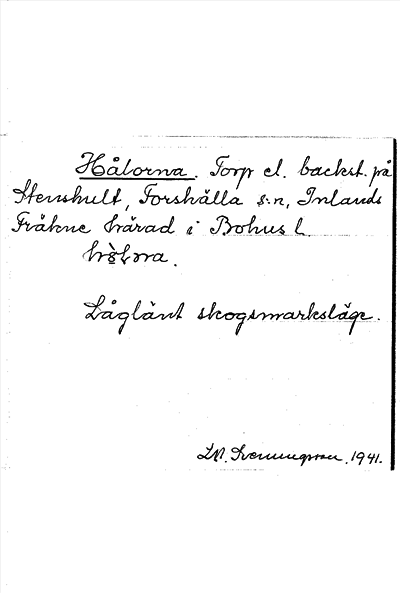 Hålorna. Torp el. backst. på
Stenshult, Forshälla s:n, Inlands
Fräkne härad i Bohus l.
Låglänt skogsmarksläge.
1941.